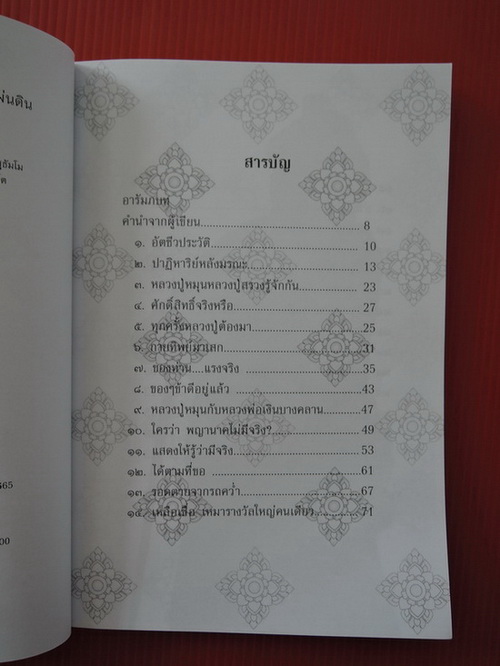 ผ่นดิน
สารบัญ
อารัมภบท
คำนำจากผู้เขียน.......................................... 8
๑. อัตชีวประวัติ....................................... 10
๒. ปาฏิหาริย์หลังมรณะ............................ 13
๓. หลวงปู่หมุนหลวงปู่สรวงรู้จักกัน ............. 23
๔. ศักดิ์สิทธิ์จริงหรือ................................ 27
๕. ทุกครั้งหลวงปู่ต้องมา........................... 25
๖. กายทิพย์มาเสก................................... 31
๗. ของท่าน....แรงจริง ............................. 35
๘. ของๆข้าดีอยู่แล้ว ................................ 43
๙. หลวงปู่หมุนกับหลวงพ่อเงินบางคลาน........ 47
๑๐. ใครว่า พญานาคไม่มีจริง?..................... 49
๑๑. แสดงให้รู้ว่ามีจริง............................... 53
๑๒. ได้ตามที่ขอ ...................................... 61
๑๓. รอดตายจากรถคว่ำ............................. 67
๑๔. เหลือเชื่อ เหมารางวัลใหญ่คนเดียว ........... 71
565
00